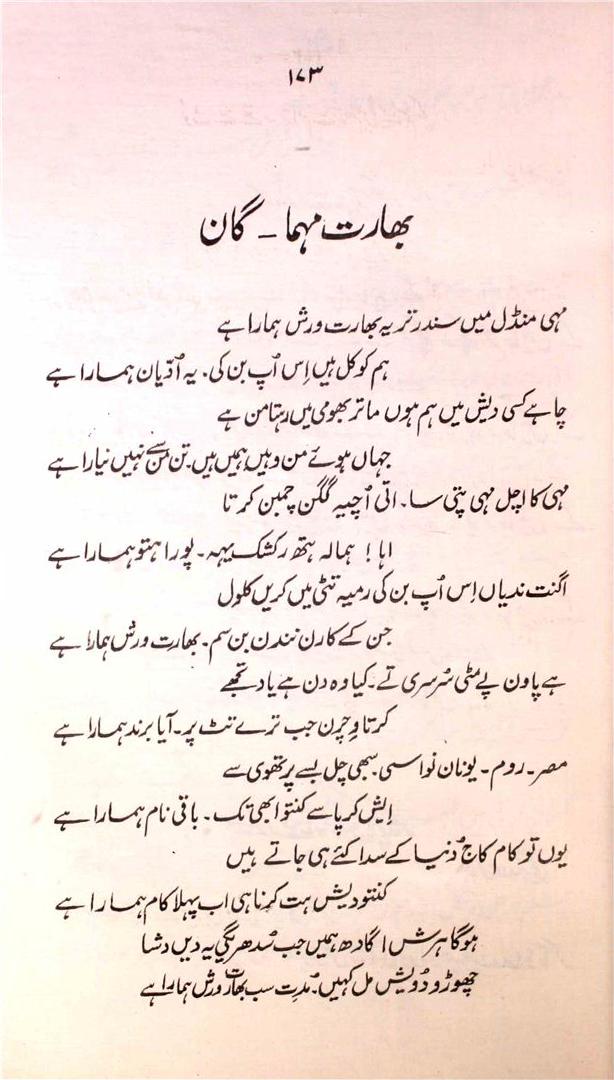 ۱۷۳
بھارت مہما - گان
مہی منڈل میں سندر تر یہ بھارت ورش ہمارا ہے
ہم کوکل ہیں اِس اُپ بن کی. یہ اُدّیان ہمارا ہے
چاہے کسی دیش میں ہم ہوں ماتر بھومی میں رہتا من ہے
جہاں ہوئے من وہیں ہمیں ہیں. تن من سے نہیں نیارا ہے
مہی کا اچل مہی پتی سا. اتی اُچیہ گگن چمبن کرتا
اہا! ہمالہ ہتھ رکشک یہہ. پورا ہتو ہمارا ہے
اگنت ندیاں اِس اُپ بن کی رمیہ تٹی میں کریں کلول
جن کے کارن نندن بن سم. بھارت ورش ہمارا ہے
ہے پاون پے مٹی سُرسری تے. کیا وہ دن ہے یاد تجھے
کرتا وِچرن جب ترے تٹ پر. آیا برند ہمارا ہے
مصر. روم. یونان نواسی. سبھی چل بسے پرتھوی سے
اِیش کرپا سے کنتو ابھی تک. باقی نام ہمارا ہے
یوں تو کام کاج دُنیا کے سدا کئے ہی جاتے ہیں
کنتو دیش ہت کرنا ہی اب پہلا کام ہمارا ہے
ہوگا ہرش اگادھ ہمیں جب سُدھریگی یہ دیں دشا
چھوڑو دُویش مل کہیں. مُدِت سب بھارت ورش ہمارا ہے